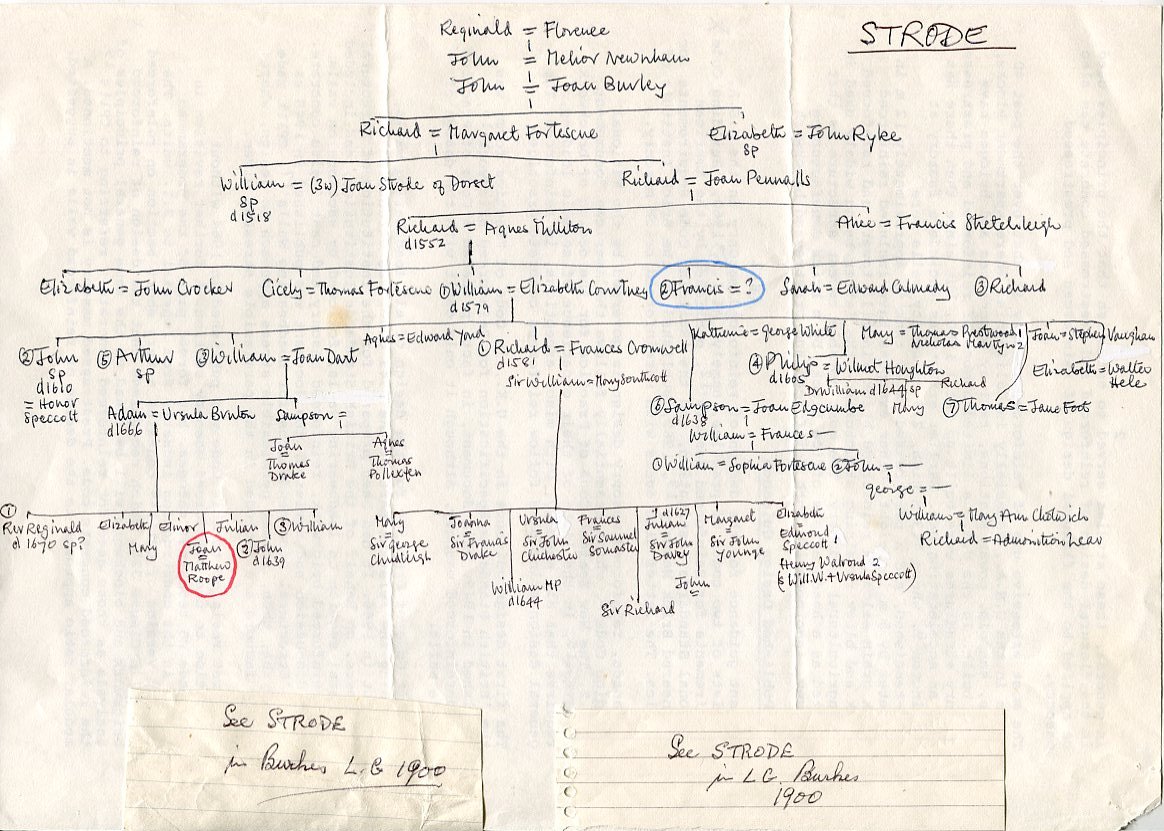 STRODE
Reginald = Florence
John = Melior Newnham
John = Joan Burley
Richard = Margaret Fortescue
Elizabeth = John Ryke
sp
William = (3w) Joan Strode of Dorset
sp
d1518
Richard = Joan Pennalls
Richard = Agnes Milliton
d1552
Alice = Francis Stretchleigh
Elizabeth = John Crocker
Cicely = Thomas Fortescue
① William = Elizabeth Courtney
d1579
② Francis = ?
Sarah = Edward Calmady
③ Richard
② John
sp
d1610
= Honor
Speccott
⑤ Arthur
sp
③ William = Joan Dart
Agnes = Edward Yond
① Richard = Frances Cromwell
d1581
Katherine = George White
④ Philip = Wilmot Houghton
d1605
Mary = Thomas Prestwood 1
Nicholas Martyn 2
Joan = Stephen Vaughan
Elizabeth = Walter
Hele
Sir William = Mary Southcott
Dr William d1644 sp
Mary
Richard
⑥ Sampson = Joan Edgcumbe
d1638
⑦ Thomas = Jane Foot
Adam = Ursula Brinton
d1666
Sampson =
Joan
=
Thomas
Drake
Agnes
=
Thomas
Pollexfen
William = Frances —
① William = Sophia Fortescue
② John = —
George = —
William = Mary Ann Chetwich
Richard = Admonition Lear
①
Rev Reginald
d 1670 sp?
Elizabeth
Mary
Elinor
Joan
=
Matthew
Roope
Julian
② John
d1639
③ William
Mary
=
Sir George
Chudleigh
Joanna
=
Sir Francis
Drake
Ursula
=
Sir John
Chichester
William MP
d1644
Frances
=
Sir Samuel
Somaster
Sir Richard
Julian d1627
=
Sir John
Davey
John
=
Margaret
=
Sir John
Younge
Elizabeth
=
Edmond
Speccott 1
Henry Walrond 2
(s Will.W. + Ursula Speccott)
See STRODE
in Burkes L.G 1900
See STRODE
in L.G. Burkes
1900